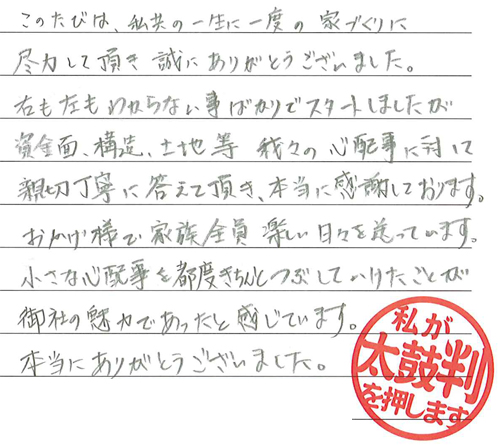 このたびは、私共の一生に一度の家づくりに
尽力して頂き誠にありがとうございました。
右も左もわからない事ばかりでスタートしましたが
資金面、構造、土地等 我々の心配事に対して
親切丁寧に答えて頂き、本当に感謝しております。
おかげ様で家族全員楽しい日々を送っています。
小さな心配事を都度きちんとつぶしていけたことが
御社の魅力であったと感じています。
本当にありがとうございました。
私が
太鼓判
を押します